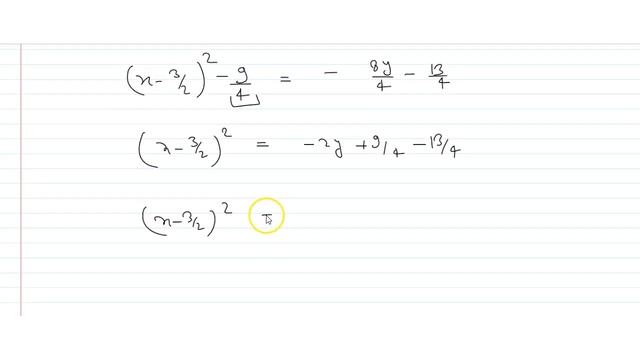 (x - 3/2)² - 9/4 = - 8y/4 - 13/4
(x - 3/2)² = -2y + 9/4 - 13/4
(x - 3/2)² =